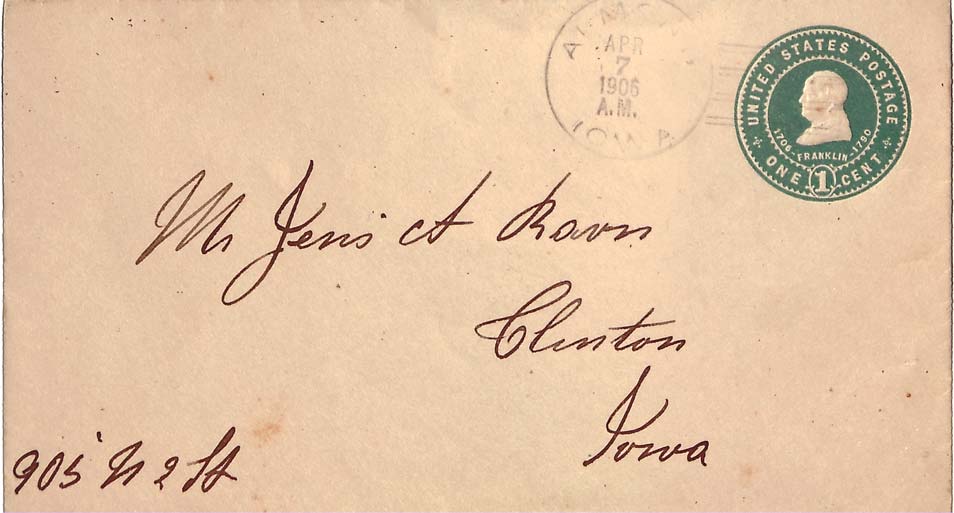 APR
7
1906
A.M.
IOWA
UNITED STATES POSTAGE
1706 - FRANKLIN - 1790
ONE 1 CENT
Mr Jens A Ravn
Clinton
Iowa
905 N 2 St